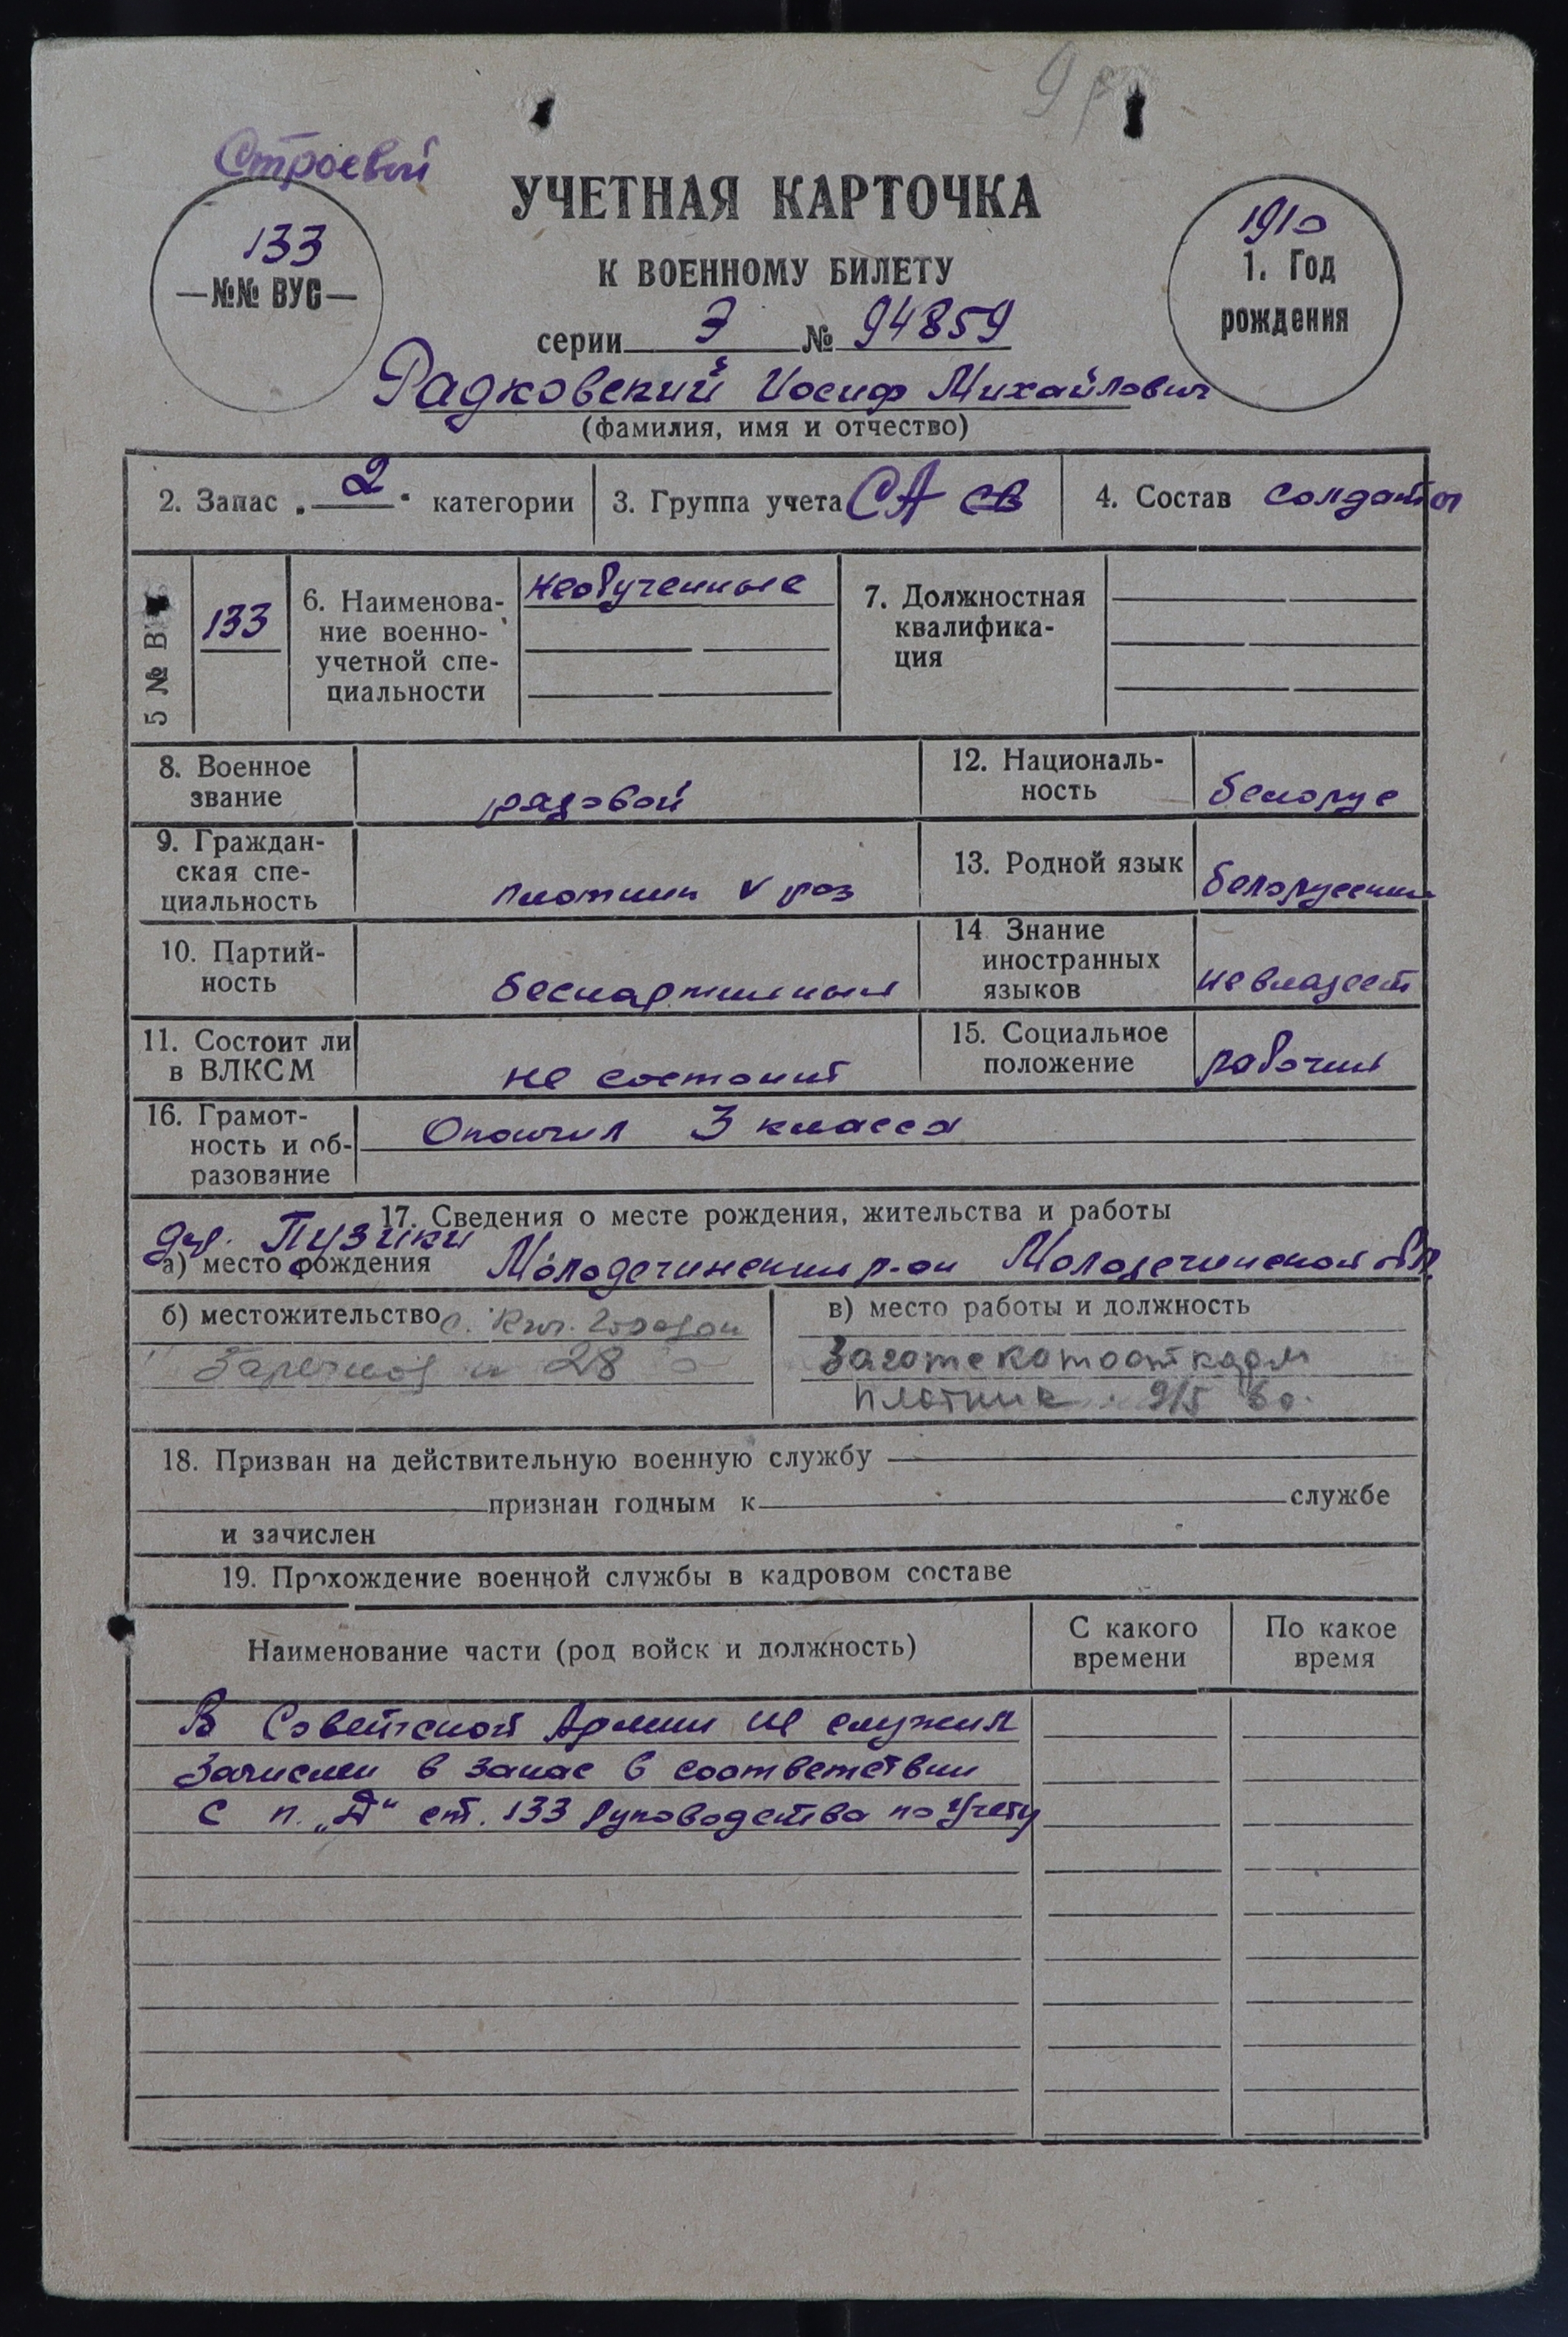 Строевой
УЧЕТНАЯ КАРТОЧКА
К ВОЕННОМУ БИЛЕТУ
133
—№№ ВУС—
1910
1. Год
рождения
серии Э № 94859
Радковский Иосиф Михайлович
(фамилия, имя и отчество)
2. Запас „2" категории
3. Группа учета СА СВ
4. Состав солдаты
5 № В
133
6. Наименова-
ние военно-
учетной спе-
циальности
необученные
7. Должностная
квалифика-
ция
8. Военное
звание
рядовой
12. Националь-
ность
белорус
9. Граждан-
ская спе-
циальность
плотник V раз
13. Родной язык
белорусский
10. Партий-
ность
беспартийный
14 Знание
иностранных
языков
не владеет
11. Состоит ли
в ВЛКСМ
не состоит
15. Социальное
положение
рабочий
16. Грамот-
ность и об-
разование
Окончил 3 класса
17. Сведения о месте рождения, жительства и работы
дер. Пузики
а) место рождения Молодечненский р-он Молодечненской обл.
б) местожительство с.
28
в) место работы и должность
плотник. 9/5 60.
18. Призван на действительную военную службу
признан годным к службе
и зачислен
19. Прохождение военной службы в кадровом составе
Наименование части (род войск и должность)
С какого
времени
По какое
время
В Советской Армии не служил
Зачислен в запас в соответствии
с п. „Д" ст. 133 Руководства по Учету